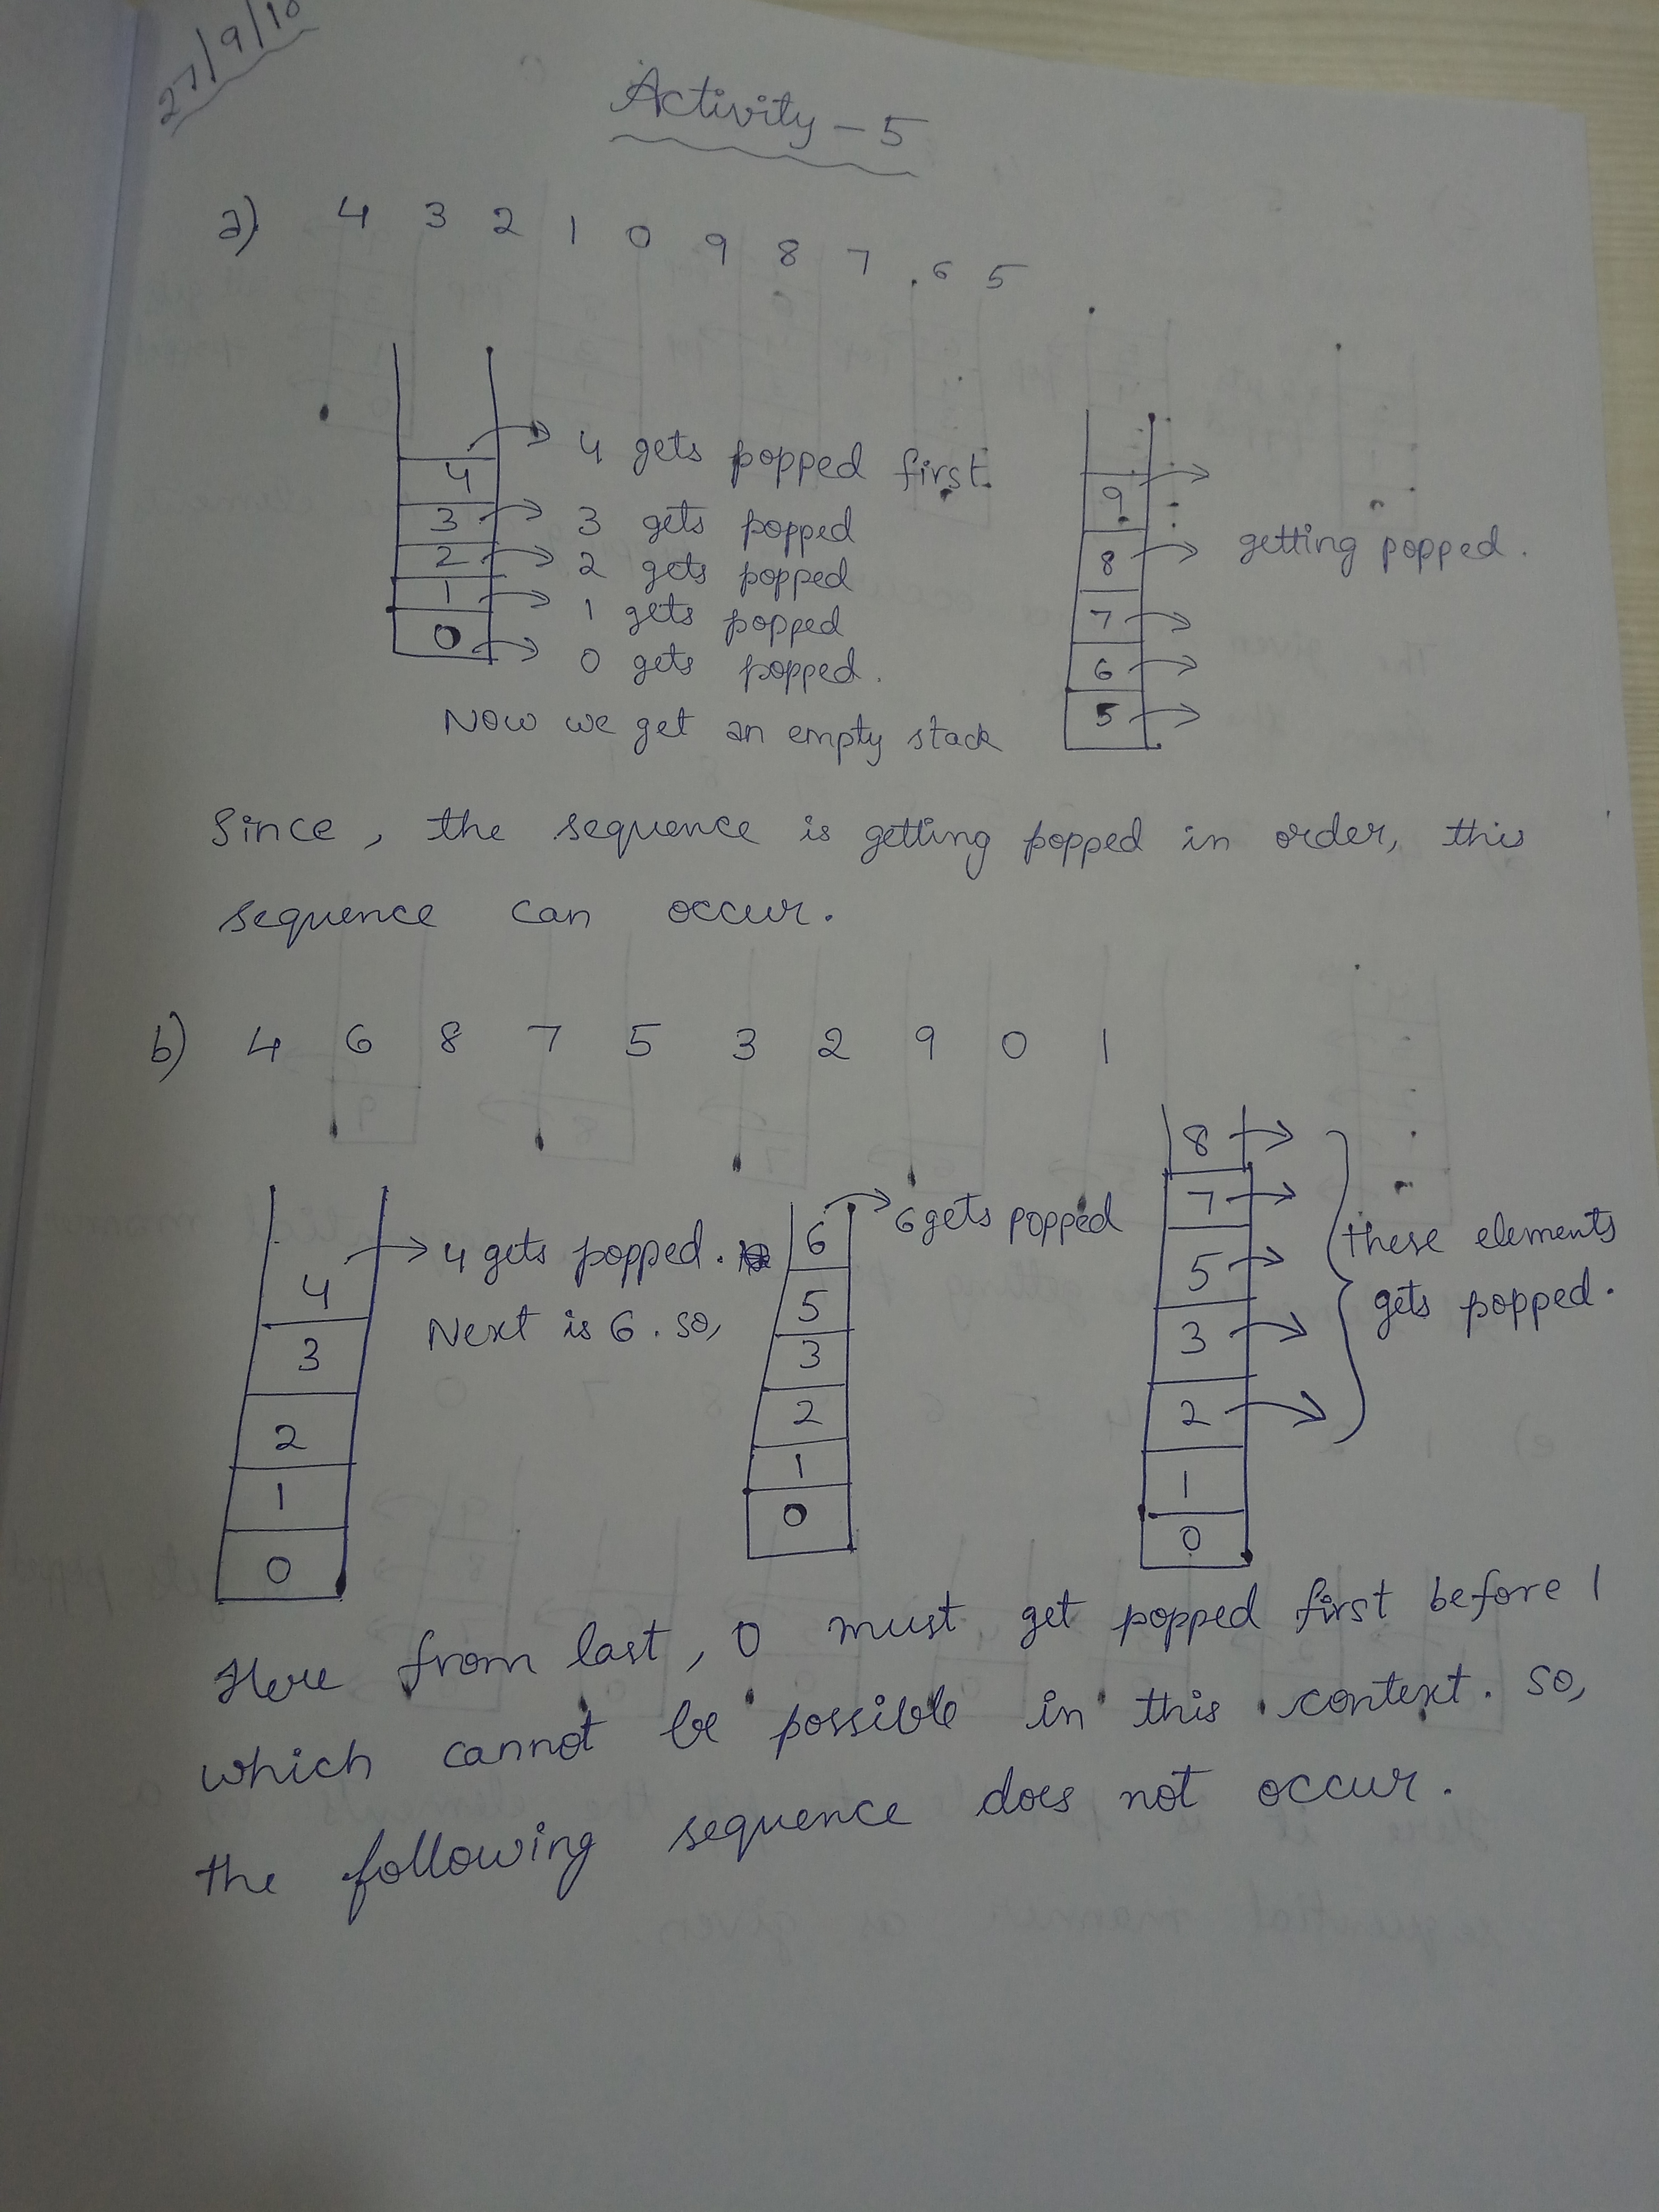 27/9/10
Activity - 5
a) 4 3 2 1 0 9 8 7 6 5
4 → 4 gets popped first.
3 → 3 gets popped
2 → 2 gets popped
1 → 1 gets popped
0 → 0 gets popped.
Now we get an empty stack
9 →
8 → getting popped.
7 →
6 →
5 →
Since, the sequence is getting popped in order, this
sequence can occur.
b) 4 6 8 7 5 3 2 9 0 1
4 → 4 gets popped.
Next is 6. so,
3
2
1
0
6 → 6 gets popped
5
3
2
1
0
8 →
7 →
5 →
3 →
2 →
1
0
these elements
gets popped.
Here from last, 0 must get popped first before 1
which cannot be possible in this context. so,
the following sequence does not occur.